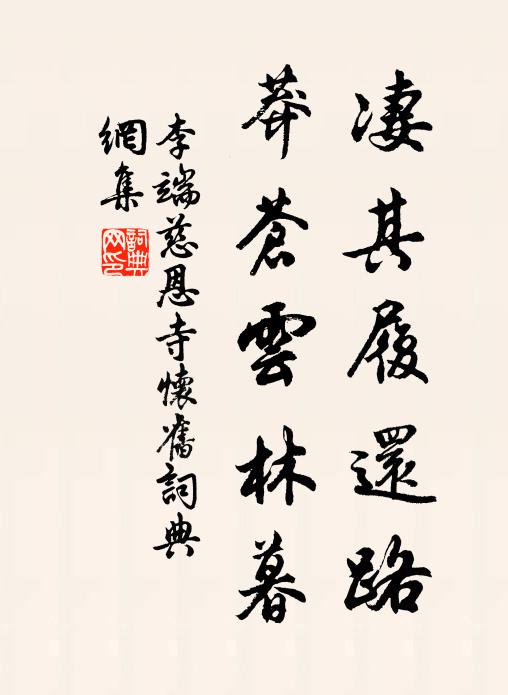 凄其履還路
莽蒼雲林暮
李端慈恩寺懷舊詞典
網集
詞典網印